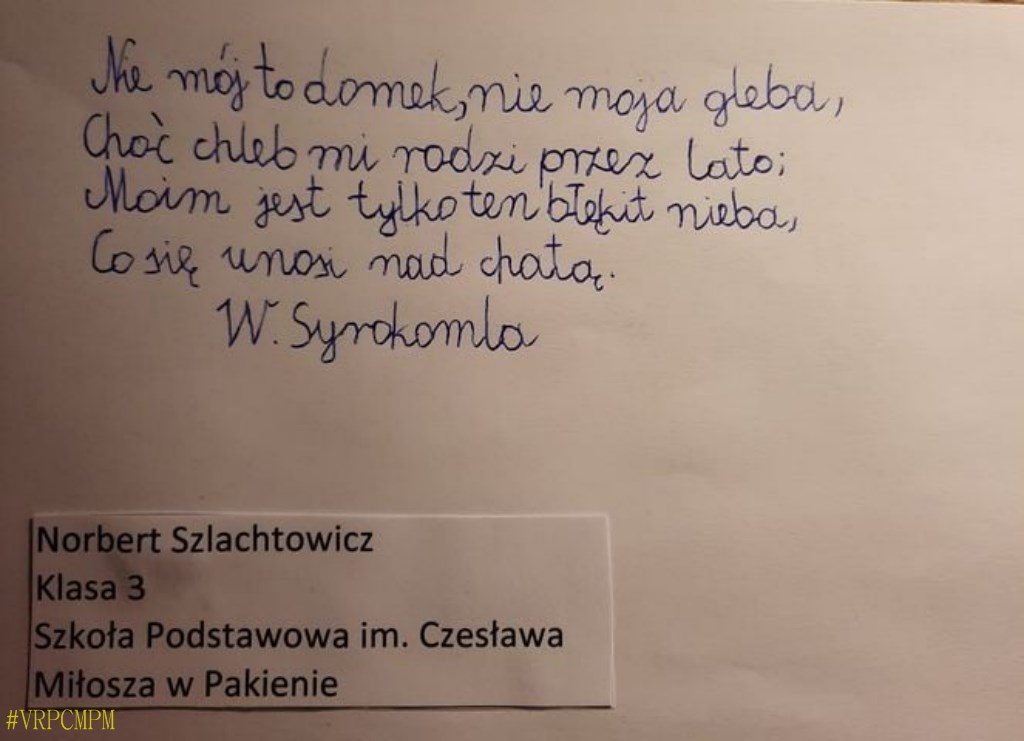 Nie mój to domek, nie moja gleba,
Choć chleb mi rodzi przez lato;
Moim jest tylko ten błękit nieba,
Co się unosi nad chatą.
W. Syrokomla
Norbert Szlachtowicz
Klasa 3
Szkoła Podstawowa im. Czesława
Miłosza w Pakienie
#VRPCMPM